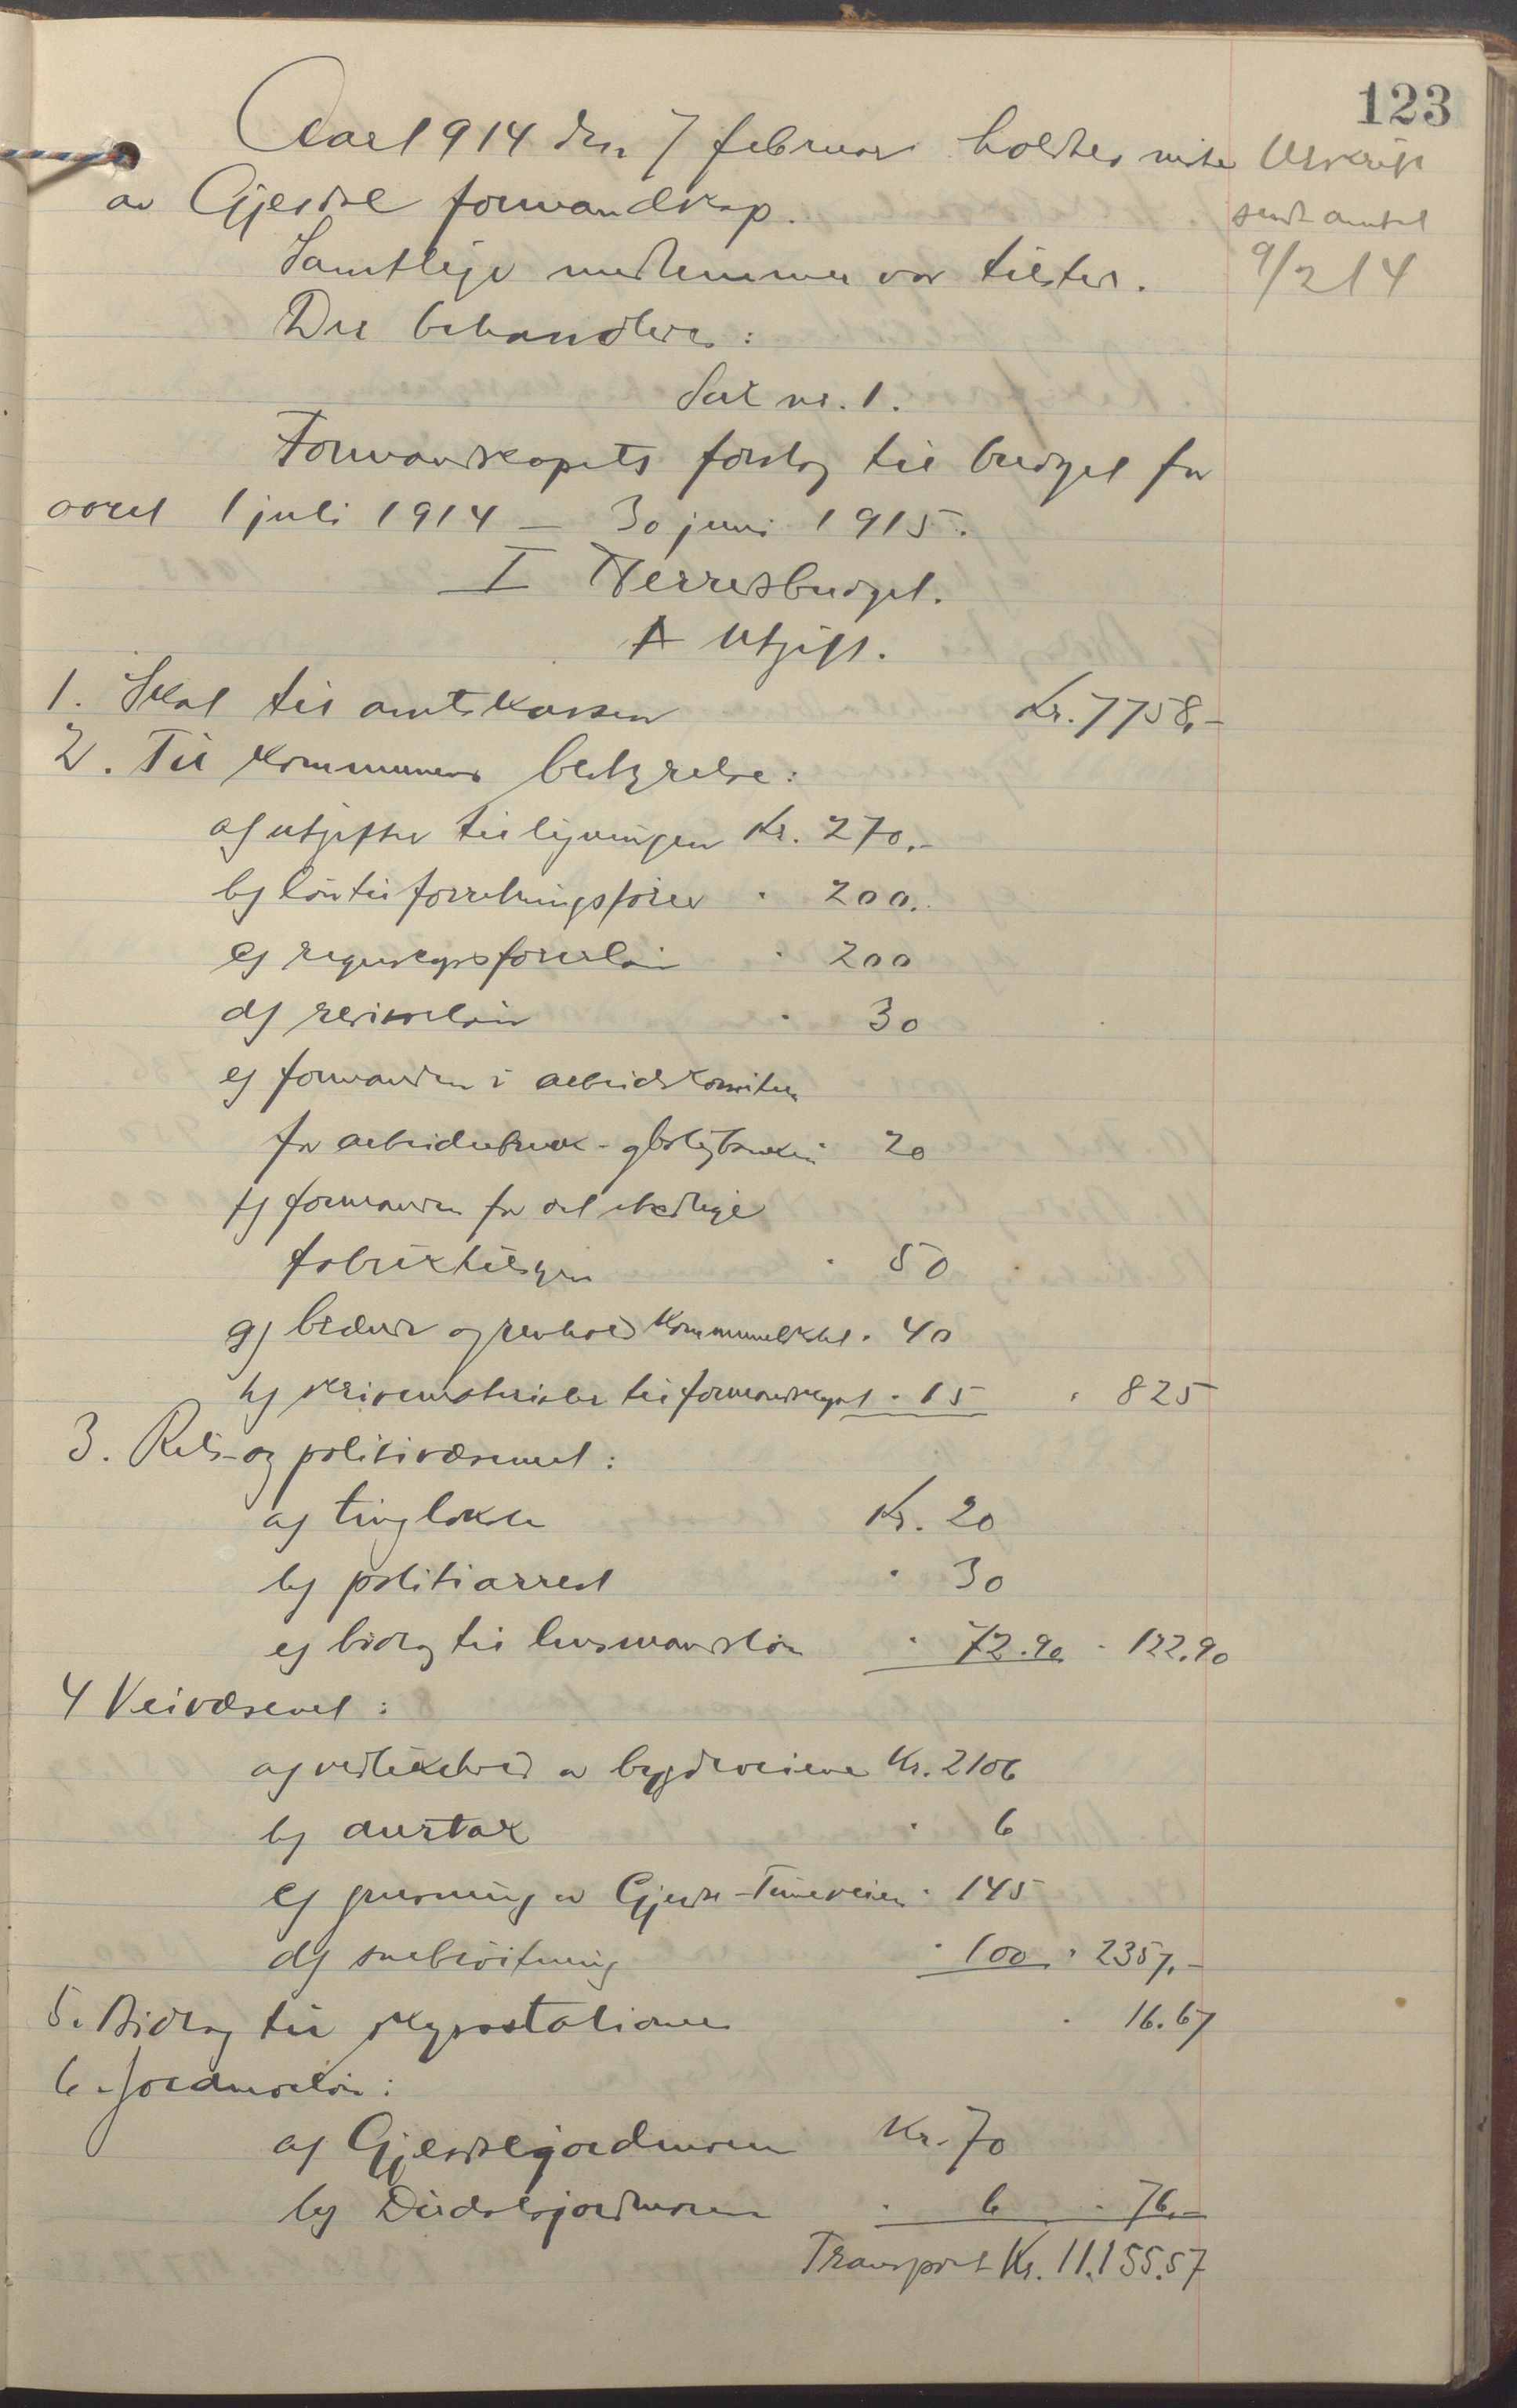 123
Aar 1914 den 7 februar holdtes møte
av Gjesdal formandskap.
Utskrift
sendt amtet
9/2 14
Samtlige medlemmer var tilstede.
Der behandledes:
Sak nr. 1.
Formandskapets forslag til budget for
aaret 1 juli 1914 – 30 juni 1915.
I Herredsbudget.
A Utgift.
1. Skat til amtskassen Kr. 7758,-
2. Til kommunens bestyrelse:
a) utgifter til ligningen Kr. 270.-
b) løn til forretningsfører " 200.
c) regnskapsførerløn " 200
d) revisorløn " 30
e) formanden i arbeidskomiteen
for arbeiderbruk- og boligbanken 20
f) formanden for det stedlige
fabriktilsyn " 50
g) brænde og renhold kommunelokal " 40
h) skrivematerialer til formandskapet " 15 " 825
3. Rets- og politivæsenet:
a) tinglokale Kr. 20
b) politiarrest " 30
c) bidrag til lensmandsløn " 72.90 " 122.90
4 Veivæsenet:
a) vedlikehold av bygdeveiene Kr. 2106
b) aurtak " 6
c) grusning av Gjesdal-Timeveien " 145
d) snebrøitning " 100 " 2357,-
5. Bidrag til skysstationer " 16.67
6. Jordmorløn:
a) Gjesdaljordmoren Kr. 70
b) Dirdalsjordmoren " 6 " 76,-
Transport Kr. 11.155.57